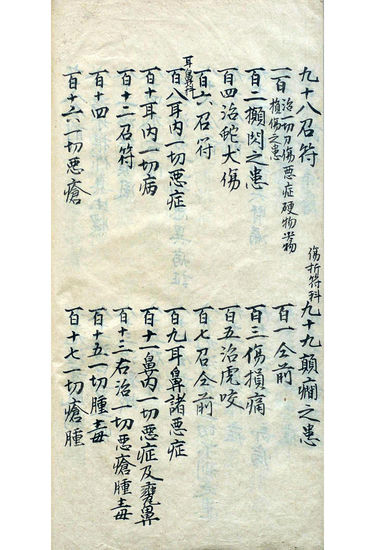 九十八召符
傷折符科
九十九顛癇之患
一百治一切刀傷惡症硬物物損傷之患
百一仝前
百二攧閃之患
百三傷損痛
百四治蛇犬傷
百五治虎咬
百六召符
百七召仝前
耳鼻科
百八耳內一切惡症
百九耳鼻諸惡症
百十耳內一切病
百十一鼻內一切惡症及壅鼻
百十二召符
百十三右治一切惡瘡腫毒
百十四
百十五一切腫毒
百十六一切惡瘡
百十七一切瘡腫